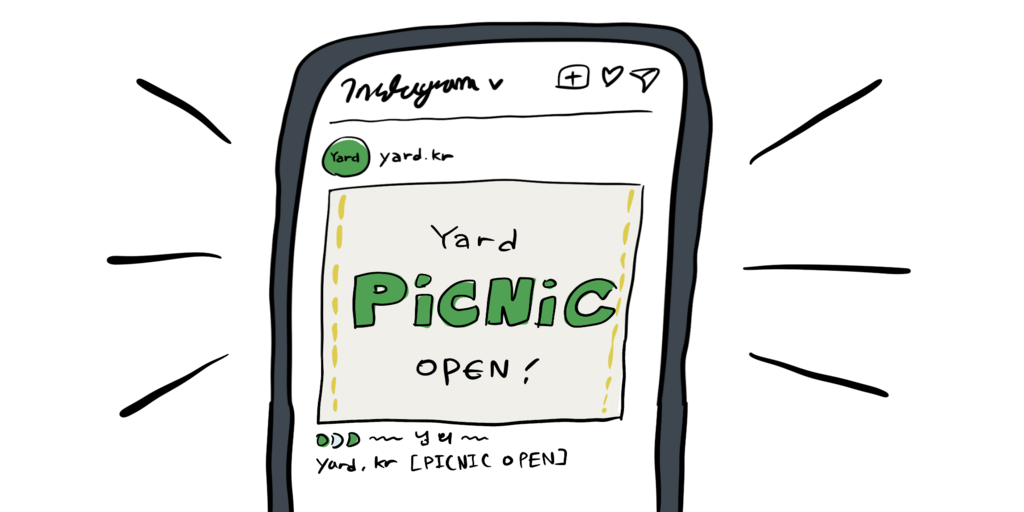 Instagram
Yard
yard.kr
Yard
PiCNiC
OPEN!
~~ 님 외 ~~
yard.kr [PICNIC OPEN]